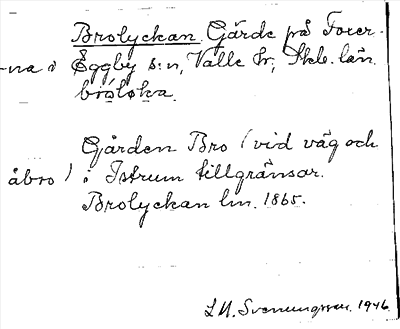 Brolyckan. Gärde på Torer-
na i Eggby s:n, Valle hr, Skb. län.
bróloka.
Gården Bro (vid väg och
åbro) i Istrum tillgränsar.
Brolyckan lm. 1865.
L M. Svenungsson. 1946